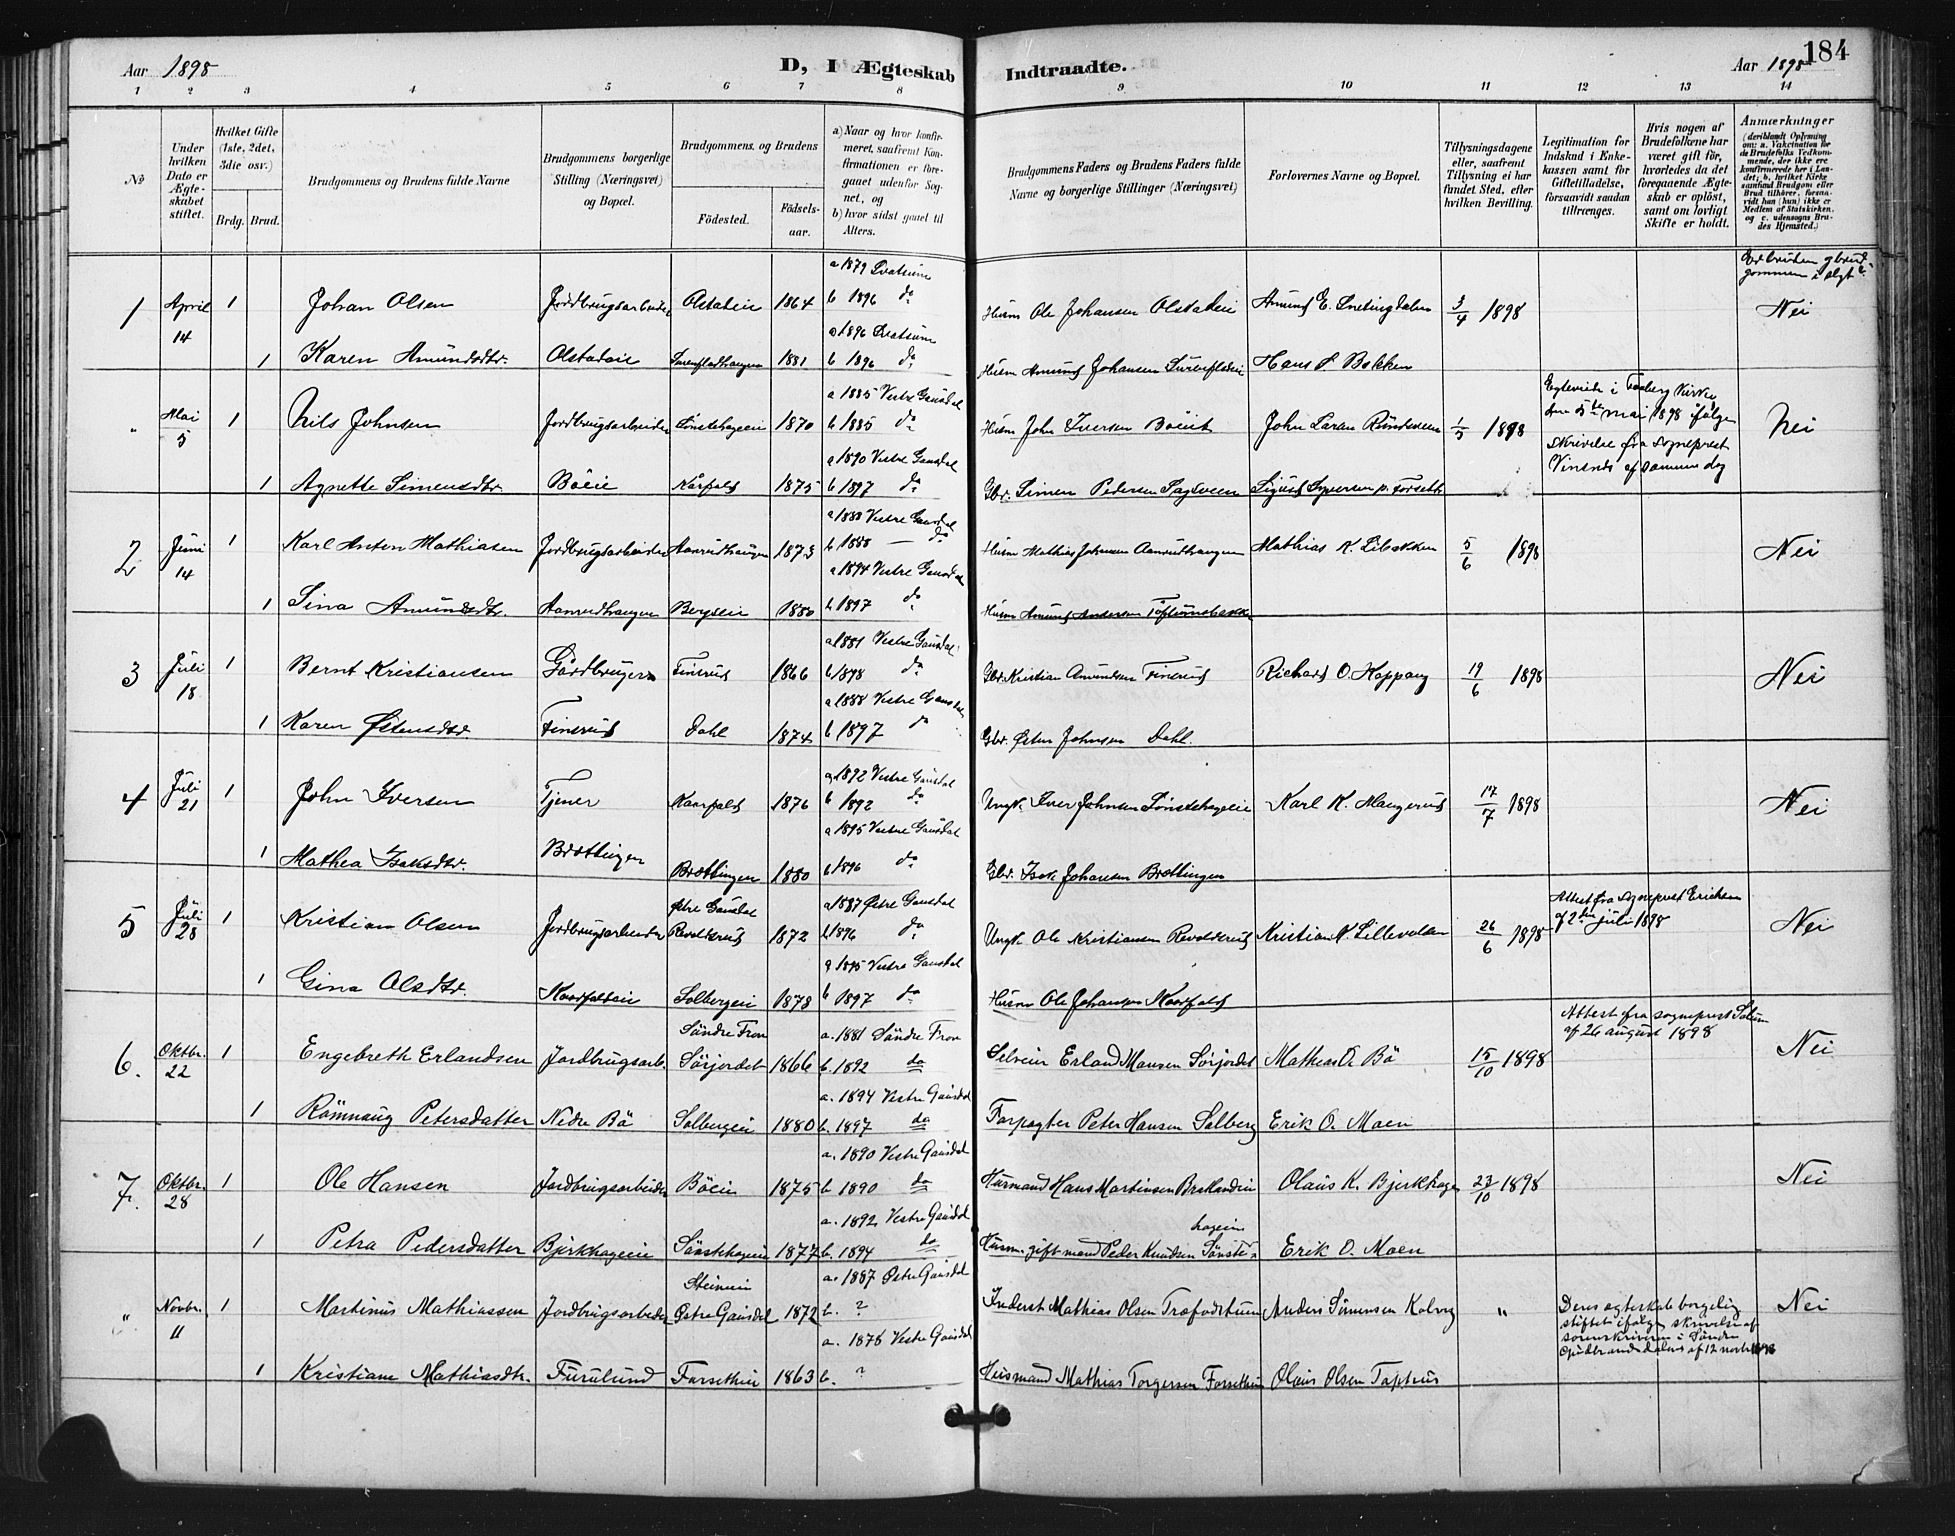 184
Aar 1898
D, I Ægteskab Indtraadte.
Aar 1898
1 2 3 4 5 6 7 8 9 10 11 12 13 14
No
Under hvilken Dato er Ægteskabet stiftet.
Hvilket Gifte (1ste, 2det, 3die osv.)
Brdg. Brud.
Brudgommens og Brudens fulde Navne
Brudgommens borgerlige Stilling (Næringsvei) og Bopæl.
Brudgommens og Brudens
Födested.
Födsels-aar.
a) Naar og hvor konfirmeret, saafremt Konfirmationen er foregaaet udenfor Sognet, og
b) hvor sidst gaaet til Alters.
Brudgommens Faders og Brudens Faders fulde Navne og borgerlige Stillinger (Næringsvei)
Forlovernes Navne og Bopæl.
Tillysningsdagene eller, saafremt Tillysning ei har fundet Sted, efter hvilken Bevilling.
Legitimation for Indskud i Enkekassen samt for Giftetilladelse, forsaavidt saadan tiltrænges.
Hvis nogen af Brudefolkene har været gift før, hvorledes da det foregaaende Ægteskab er oplöst, samt om lovligt Skifte er holdt.
Anmærkninger
(deriblandt Oplysning om: a. Vaccination for de Brudefolks Vedkommende, der ikke ere konfirmerede her i Landet; b. hvilket Kirkesamfund Brudgom eller Brud tilhörer, forsaavidt han (hun) ikke er Medlem af Statskirken, og c. udensogns Brudes Hjemsted.)
Er bruden og brudgommen i slægt?
1 April 14 1 Johan Olsen Jordbrugsarbeider Olstadeie 1864 a 1879 Svatsum b 1896 do Husm Ole Johansen Olstadeie Amund E. Snetingdalen 3/4 1898 Nei
1 Karen Amundsdtr. Olstadeie 1881 a 1896 Svatsum b 1896 do Husm Amund Johansen Hans P Bakken
" Mai 5 1 Nils Johnsen Jordbrugsarbeider Sönstehageeie 1870 a 1885 Vestre Gausdal b 1885 do Husm John Iversen Böeie John Larsen 1/5 1898 Nei
Egteviede i Faaberg Kirke den 5te mai 1898 ifölge skrivelse fra sogneprest Vinsnes af samme dag
1 Agnette Simensdtr. Böeie Kårfald 1875 a 1890 Vestre Gausdal b 1897 do Gbr. Simen Pedersen Sagsveen Sigurd Syversen p. Forseth
2 Juni 14 1 Karl Anton Mathiasen Jordbrugsarbeider Aanrudhaugen 1873 a 1888 Vestre Gausdal b 1888 — do Husm Mathias Johansen Aanrudhaugen Mathias K. Libakken 5/6 1898 Nei
1 Sina Amundsdtr. Aanrudhaugen Bergseie 1880 a 1894 Vestre Gausdal b 1897 do Husm Amund Andersen Töftumsbakke
3 Juli 18 1 Bernt Kristiansen Gårdbruger Finsrud 1866 a 1881 Vestre Gausdal b 1898 do Gbr. Kristian Amundsen Finsrud Richard O. Koppang 19/6 1898 Nei
1 Karen Østensdtr Finsrud Dahl 1874 a 1888 Vestre Gausdal b 1897 do Gbr. Østen Johnsen Dahl.
4 Juli 21 1 John Iversen Tjener Kaarfald 1876 a 1892 Vestre Gausdal b 1892 do Ungk. Iver Johnsen Sönstehageeie Karl K. Haugerud 17/7 1898 Nei
1 Mathea Isaksdtr. Brottingen Brottingen 1880 a 1895 Vestre Gausdal b 1896 do Gbr. Isak Johansen Brottingen
5 Juli 28 1 Kristian Olsen Jordbrugsarbeider Østre Gausdal Revolderud 1872 a 1887 Østre Gausdal b 1896 do Ungk. Ole Kristiansen Revolderud Kristian N. Lillevolden 26/6 1898 Nei
Attest fra sogneprest Eriksen af 2den juli 1898
1 Gina Olsdtr. Kaarfaldeie Solbergeie 1878 a 1895 Vestre Gausdal b 1897 do Husm Ole Johansen Kaarfald
6. Oktbr. 22 1 Engebreth Erlandsen Jordbrugsarb. Söndre Fron Sörjordet 1866 a. 1881 Söndre Fron b. 1892 do Selveier Erland Hansen Sörjordet Mathias O. Bö 15/10 1898 Nei
Attest fra sogneprest Solum af 26 august 1898
1 Römnaug Petersdatter Nedre Bö Solbergeie 1880 a. 1894 Vestre Gausdal b. 1897 do Forpagter Peter Hansen Solberg Erik O. Moen
7. Oktbr. 28 1 Ole Hansen Jordbrugsarbeider Böeie 1875 a. 1890 Vestre Gausdal b. 1890 do Husmand Hans Martinsen Olaus K. Bjerkhagen 23/10 1898 Nei
1 Petra Pedersdatter Björkhageeie Sönstehageeie 1877 a. 1892 Vestre Gausdal b. 1894 do Husm. gift mand Peder Knudsen Sönstehageeie Erik O. Moen
" Novbr. 11 1 Martinus Mathiassen Jordbrugsarbeider Steineie Østre Gausdal 1872 a. 1887 Østre Gausdal b. ? Inderst Mathias Olsen Træfodstuen Anders Simensen Kalveg " Nei
Deres ægteskab borgelig stiftet ifölge skrivelse af sorenskriveren i Söndre Gudbrandsdalen af 12 novbr 1898
1 Kristiane Mathiasdtr. Furulund Forsetheie 1863 a. 1878 Vestre Gausdal b. ? Husmand Mathias Torgersen Forsetheie Olaus Olsen Toptrud